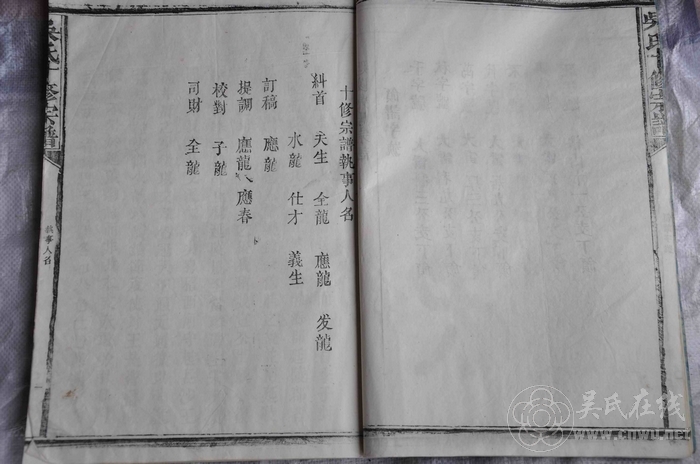 十修宗譜執事人名
糾首 夫生 全龍 應龍 发龍
水龍 仕才 義生
訂稿 應龍
提調 應龍 應春
校對 子龍
司財 全龍
執事人名
吴氏十修宗譜
吴氏十修宗譜
吴氏在线
www.cnwu.net